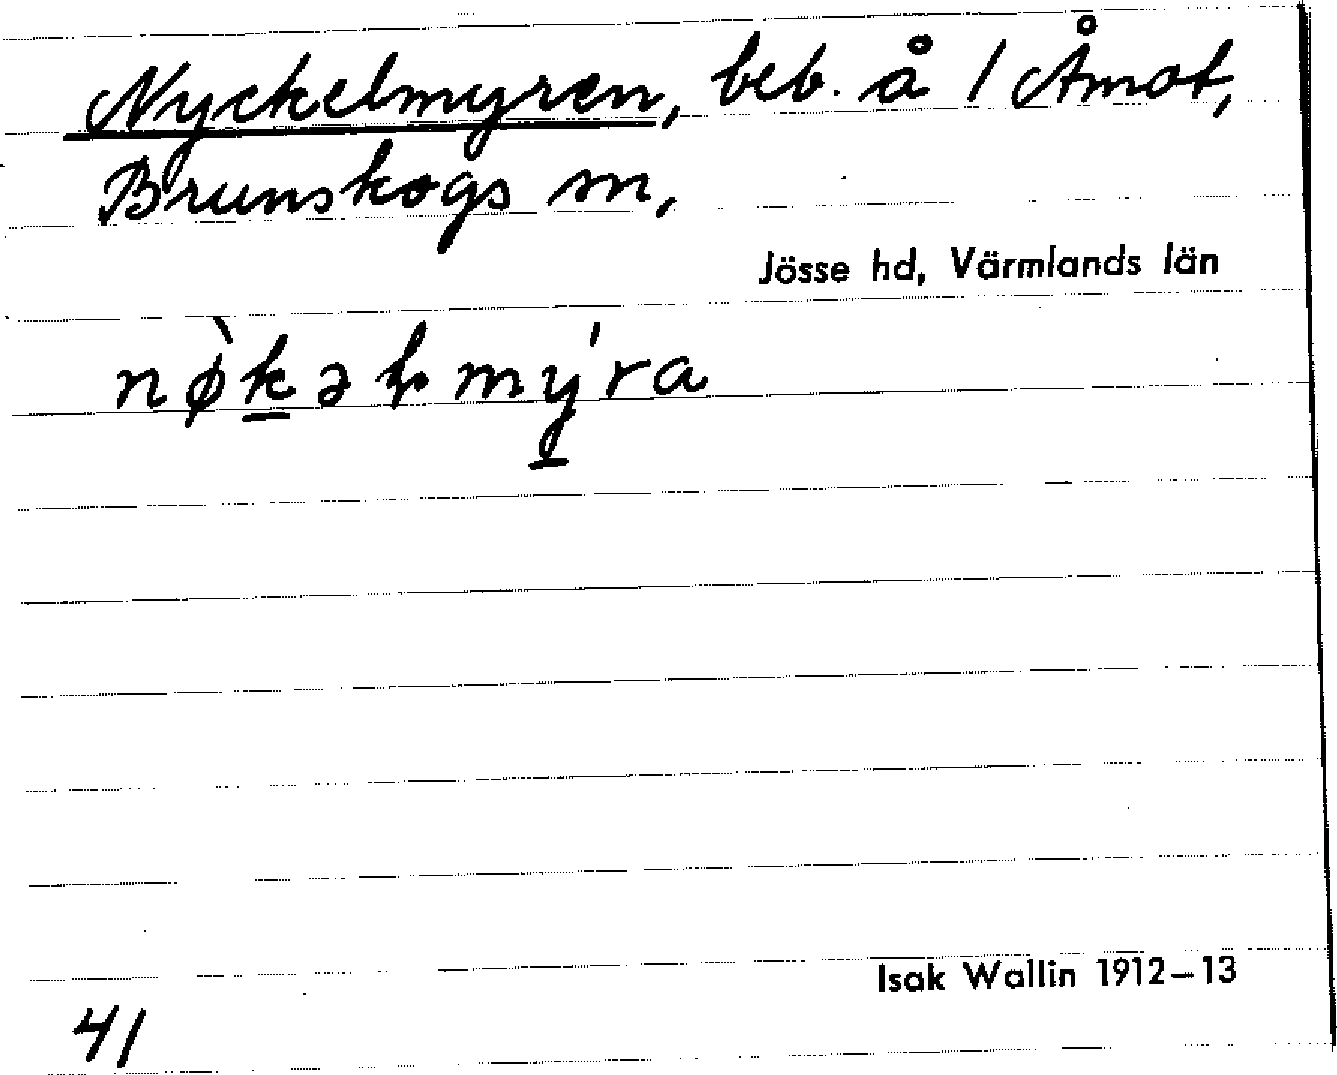 Nyckelmyren, beb. å 1 Åmot,
Brunskogs sn,
Jösse hd, Värmlands län
nø̀kəlmýra
Isak Wallin 1912–13
41